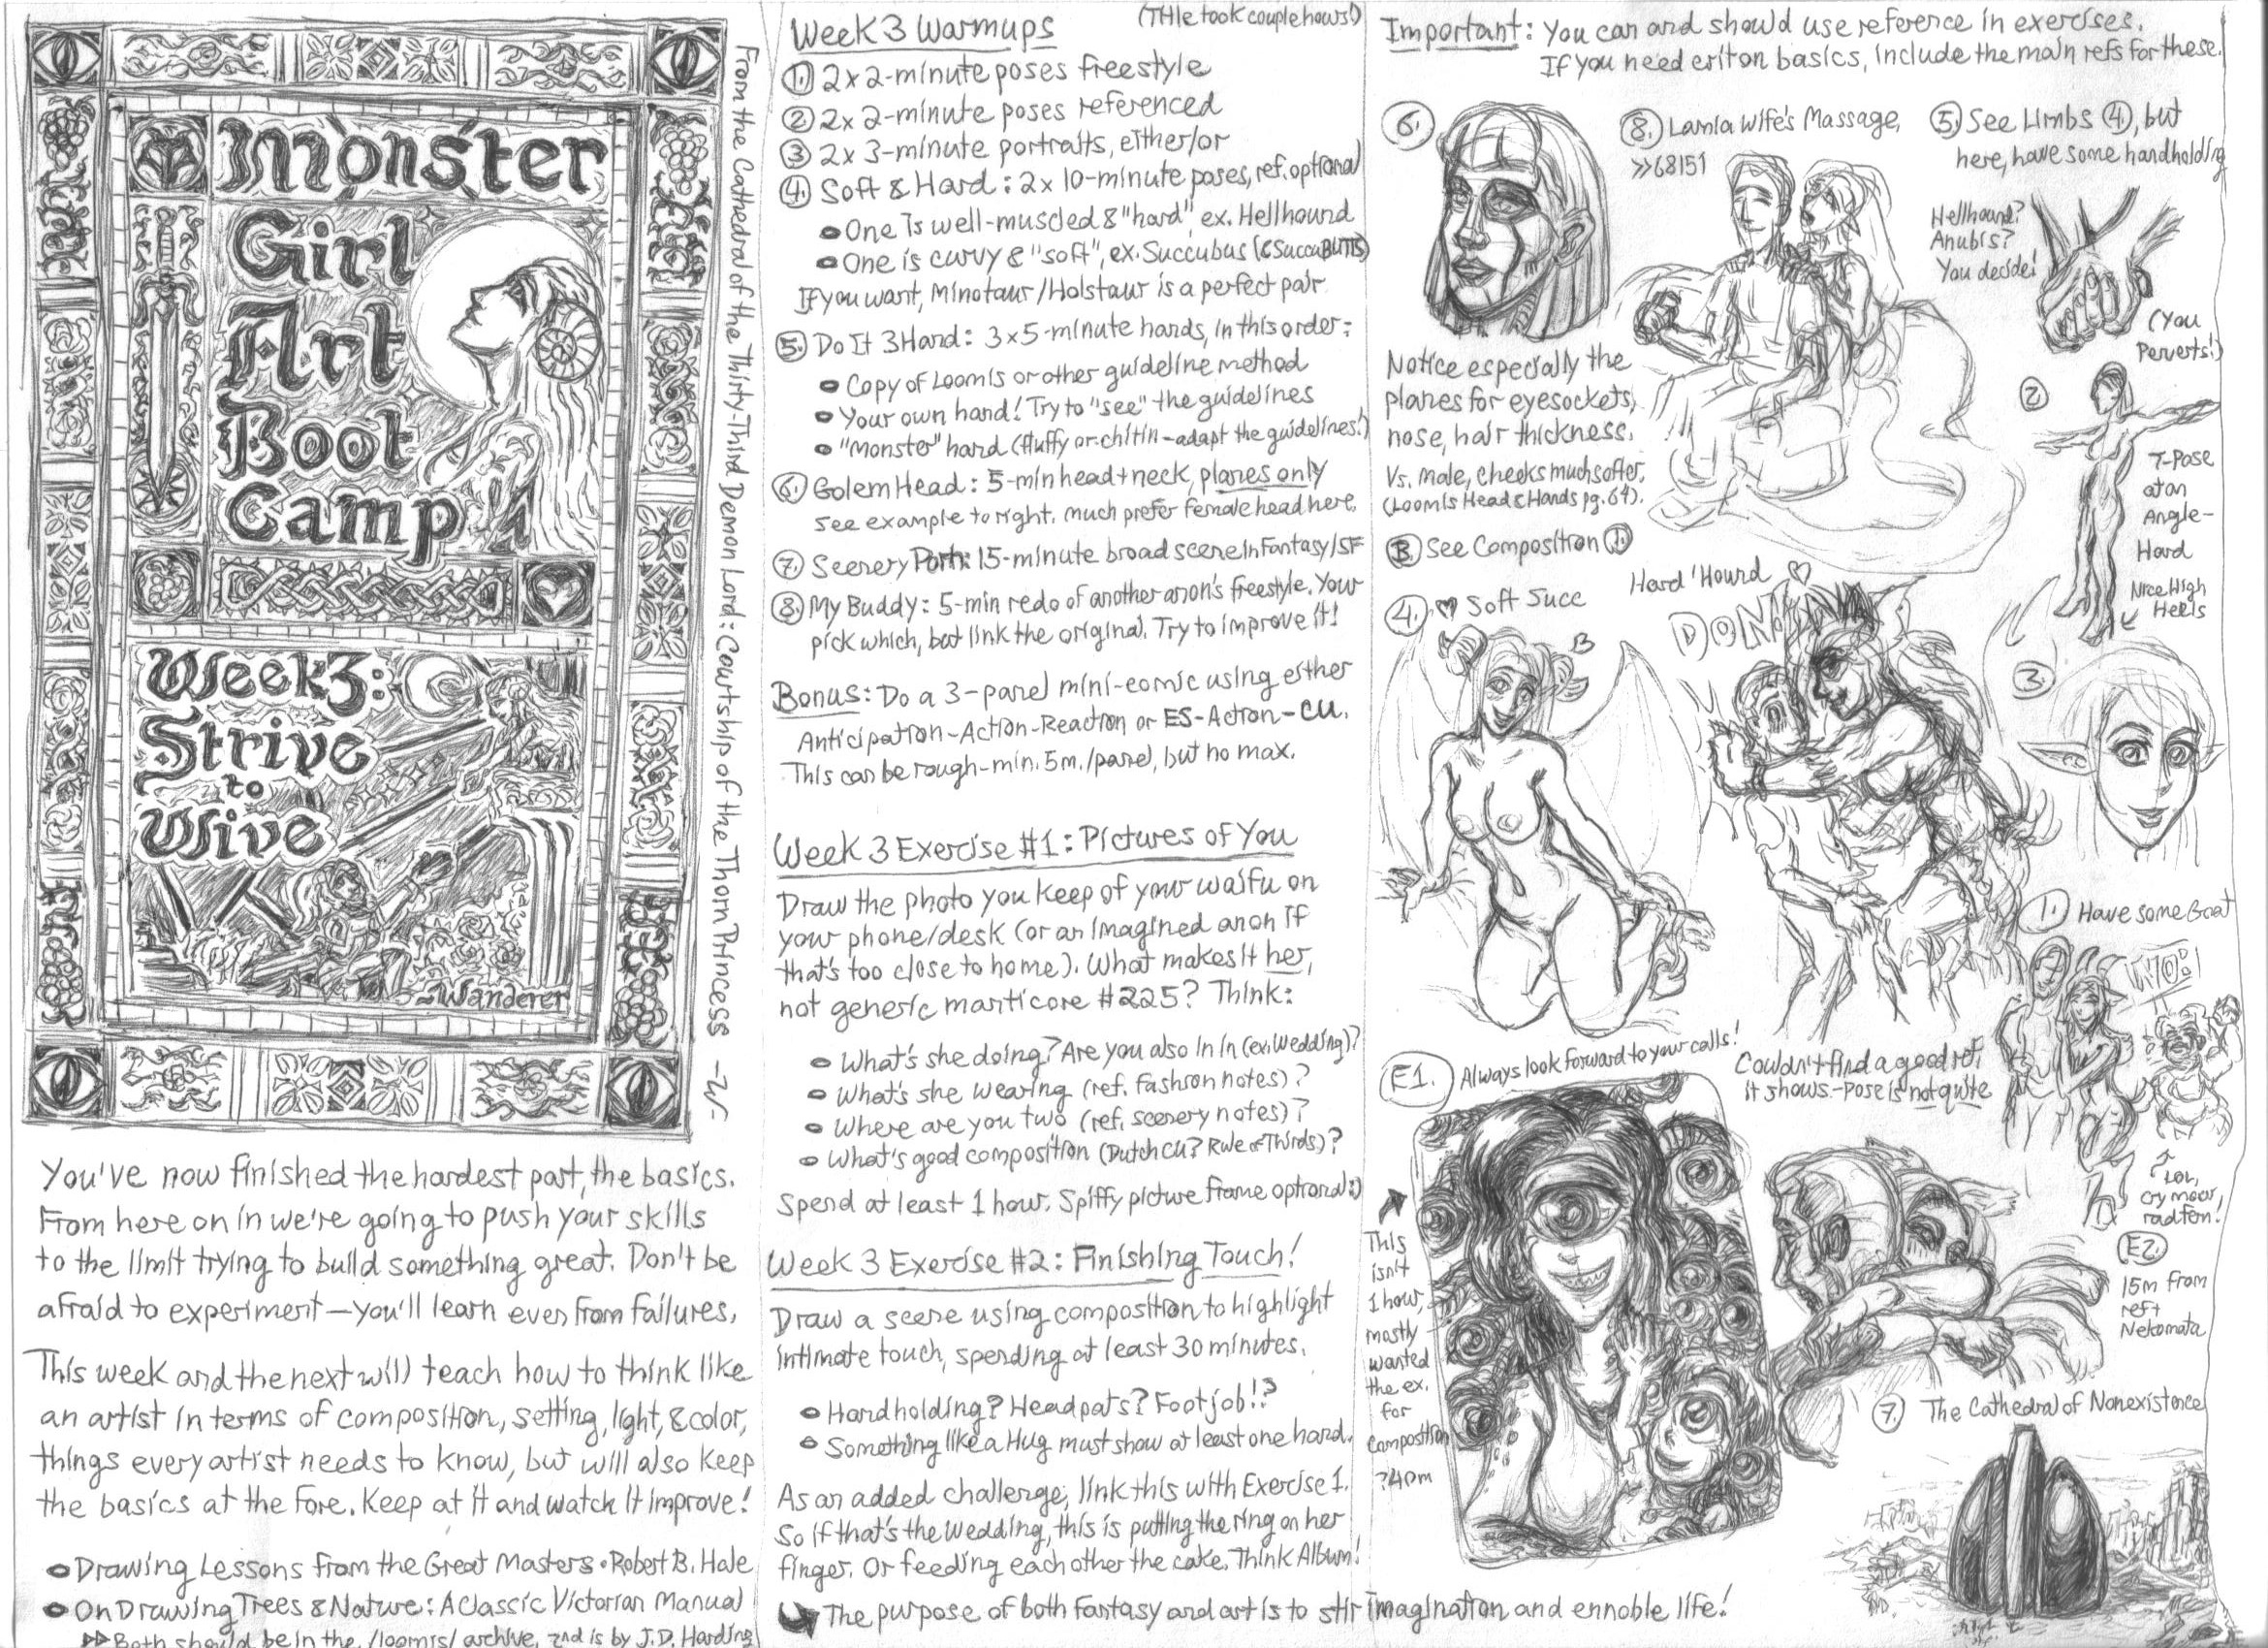 Monster
Girl
Art
Boot
Camp
Week 3:
Strive
to
Wive
~Wanderer
From the Cathedral of the Thirty-Third Demon Lord: Courtship of the Thorn Princess -W-
You've now finished the hardest part, the basics.
From here on in we're going to push your skills
to the limit trying to build something great. Don't be
afraid to experiment—you'll learn even from failures.
This week and the next will teach how to think like
an artist in terms of composition, setting, light, & color,
things every artist needs to know, but will also keep
the basics at the fore. Keep at it and watch it improve!
• Drawing Lessons from the Great Masters • Robert B. Hale
• On Drawing Trees & Nature: A Classic Victorian Manual
▷▷ Both should be in the /loomis/ archive, 2nd is by J.D. Harding
Week 3 Warmups
(THIe took couple hours!)
1. 2x 2-minute poses freestyle
2. 2x 2-minute poses referenced
3. 2x 3-minute portraits, either/or
4. Soft & Hard: 2x 10-minute poses, ref. optional
• One is well-muscled & "hard", ex. Hellhound
• One is curvy & "soft", ex. Succubus (& SuccuBUTTS)
If you want, Minotaur/Holstaur is a perfect pair
5. Do It 3 Hard: 3x5-minute hands, in this order:
• Copy of Loomis or other guideline method
• Your own hand! Try to "see" the guidelines
• "Monster" hand (fluffy or chitin - adapt the guidelines!)
6. Golem Head: 5-min head+neck, planes only
See example to right. Much prefer female head here.
7. Scenery Porn: 15-minute broad scene in Fantasy/SF
8. My Buddy: 5-min redo of another anon's freestyle. Your
pick which, but link the original. Try to improve it!
Bonus: Do a 3-panel mini-comic using either
Anticipation-Action-Reaction or ES-Action-CU.
This can be rough-min. 5m./panel, but no max.
Week 3 Exercise #1: Pictures of You
Draw the photo you keep of your waifu on
your phone/desk (or an imagined anon if
that's too close to home). What makes it her,
not generic manticore #225? Think:
• What's she doing? Are you also in in (ex. Wedding)?
• What's she wearing (ref. fashion notes)?
• Where are you two (ref. scenery notes)?
• What's good composition (Dutch CU? Rule of Thirds)?
Spend at least 1 hour. Spiffy picture frame optional :)
Week 3 Exercise #2: Finishing Touch!
Draw a scene using composition to highlight
intimate touch, spending at least 30 minutes.
• Handholding? Headpats? Footjob!?
• Something like a Hug must show at least one hand.
As an added challenge, link this with Exercise 1.
So if that's the wedding, this is putting the ring on her
finger. Or feeding each other the cake. Think Album!
The purpose of both fantasy and art is to stir imagination and ennoble life!
Important: You can and should use reference in exercises.
If you need crit on basics, include the main refs for these.
6.
8. Lamia Wife's Massage,
>>68151
5. See Limbs 4, but
here, have some handholding
Hellhound?
Anubis?
You decide!
(You
Perverts!)
Notice especially the
planes for eyesockets,
nose, hair thickness.
Vs. male, cheeks much softer.
(Loomis Head & Hands pg. 64).
2.
T-Pose
at an
Angle-
Hard
Nice High
Heels
B See Composition 1.
4. ♡ Soft Succ
Hard 'Hound ♡
3.
1. Have some Goat
Couldn't find a good ref,
it shows - pose is not quite
Lol,
cry moar,
radfem!
E1. Always look forward to your calls!
This
isn't
1 hour,
mostly
wanted
the ex.
for
composition
?40m
E2.
15m from
ref+
Nekomata
7. The Cathedral of Nonexistence